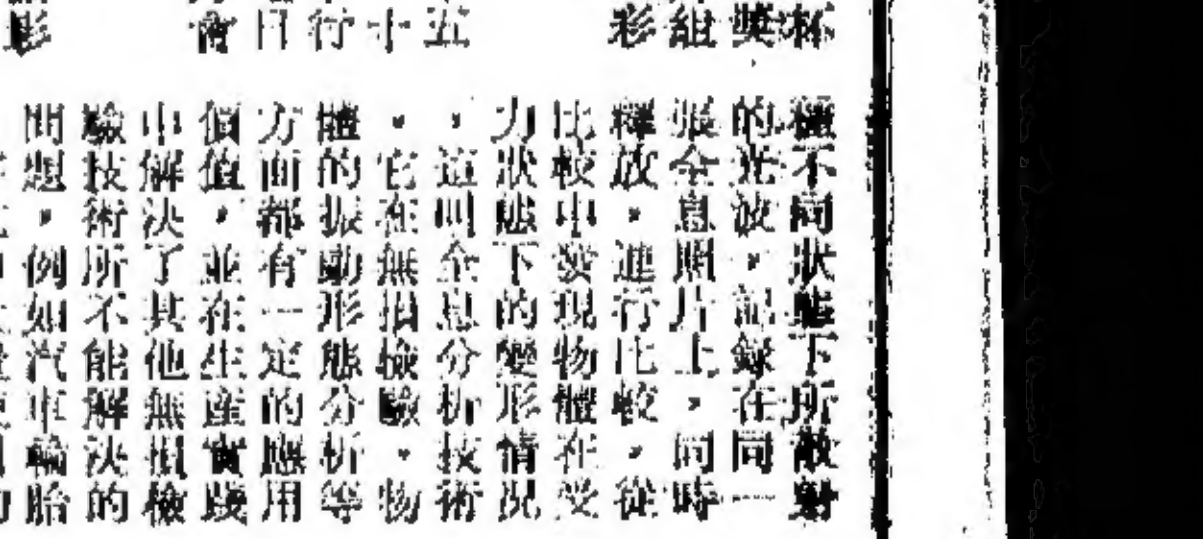 杯
獎
組
彩
五
十
行
日
會
影
種不同狀態下所散射
的光波，記錄在同一
張全息照片上，同時
釋放，進行比較，從
比較中發現物體在受
力狀態下的變形情況
，這叫全息分析技術
。它在無損檢驗、物
體的振動形態分析等
方面都有一定的應用
價值，並在生産實踐
中解決了其他無損檢
驗技術所不能解決的
問題，例如汽車輪胎